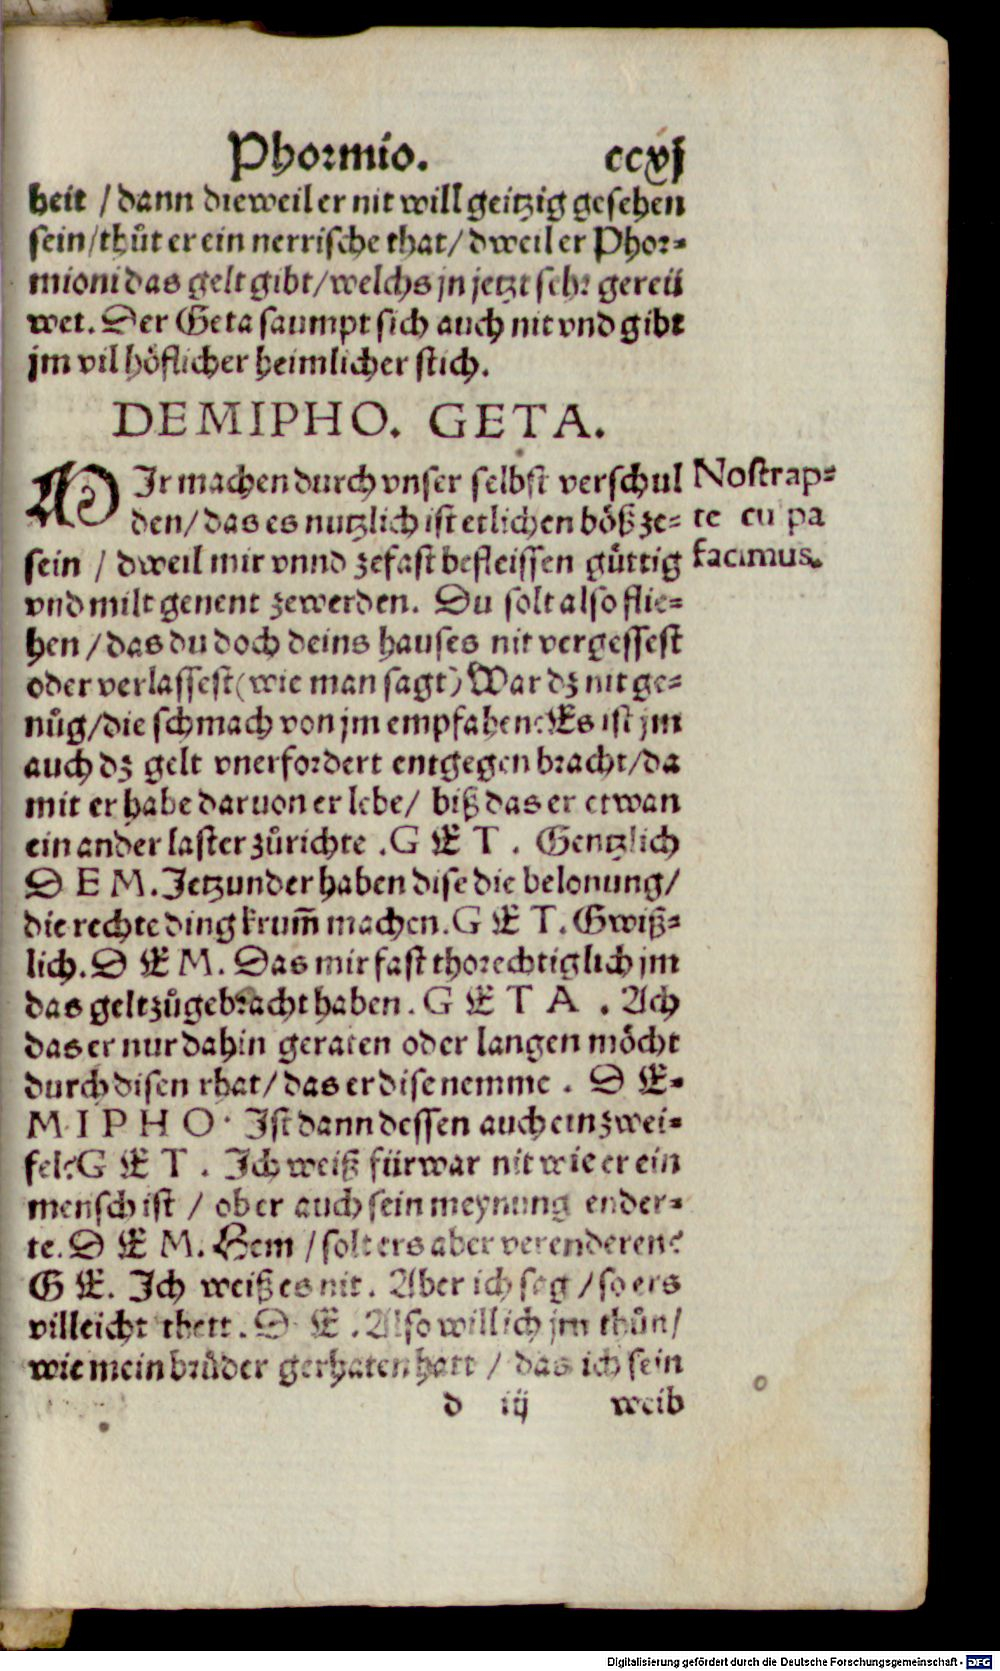 Phormio. ccxj
heit / dann dieweil er nit will geitzig gesehen
sein / thůt er ein nerrische that / dweil er Phor-
mioni das gelt gibt / welchs jn jetzt sehr gereü
wet. Der Geta saumpt sich auch nit vnd gibt
jm vil höflicher heimlicher stich.
DEMIPHO. GETA.
WIr machen durch vnser selbst verschul
den / das es nutzlich ist etlichen böß ze-
sein / dweil mir vnnd zefast befleissen güttig
vnd milt genent zewerden. Du solt also flie-
hen / das du doch deins hauses nit vergessest
oder verlassest (wie man sagt) War dz nit ge-
nůg / die schmach von jm empfahen? Es ist jm
auch dz gelt vnerfordert entgegen bracht / da
mit er habe daruon er lebe / biß das er etwan
ein ander laster zůrichte . GET . Gentzlich
DEM. Jetzunder haben dise die belonung /
die rechte ding krum̃ machen. GET. Gwiß-
lich. DEM. Das mir fast thorechtiglich jm
das gelt zůgebracht haben. GETA . Ach
das er nur dahin geraten oder langen möcht
durch disen rhat / das er dise nemme . DE-
MIPHO. Ist dann dessen auch ein zwei-
fel? GET . Ich weiß fürwar nit wie er ein
mensch ist / ob er auch sein meynung ender-
te. DEM. Hem / solt ers aber verenderen?
GE. Ich weiß es nit. Aber ich sag / so ers
villeicht thett. DE. Also will ich jm thůn /
wie mein brůder gerhaten hatt / das ich sein
d iij weib
Nostrap-
te culpa
facimus.
Digitalisierung gefördert durch die Deutsche Forschungsgemeinschaft - DFG